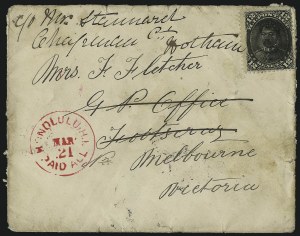 c/o Mrs Stannard
Chapman St Hotham
Mrs. F. Fletcher
G P Office
Melbourne
Victoria
HONOLULU
MAR
21
PAID ALL